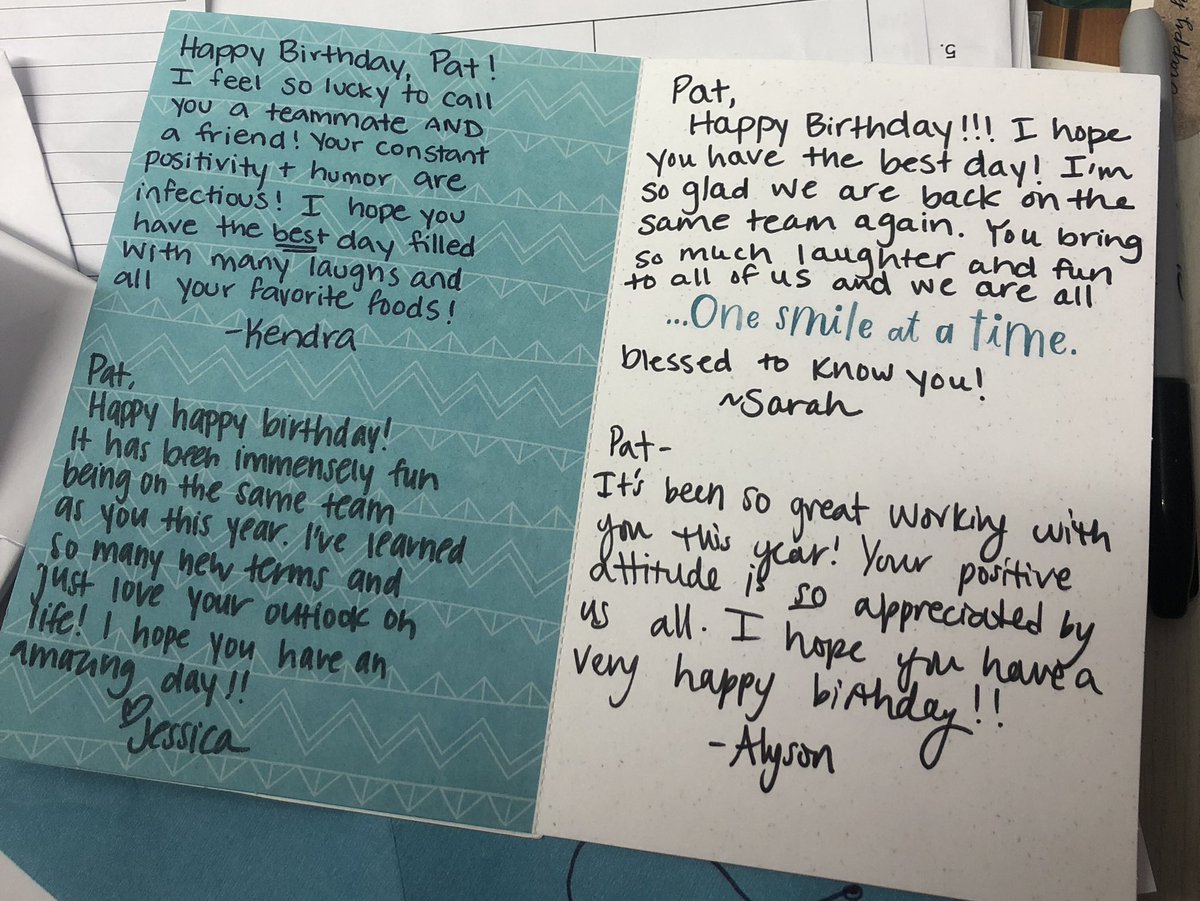 Happy Birthday, Pat!
I feel so lucky to call
you a teammate AND
a friend! Your constant
positivity + humor are
infectious! I hope you
have the best day filled
with many laughs and
all your favorite foods!
-Kendra
Pat,
Happy happy birthday!
It has been immensely fun
being on the same team
as you this year. I've learned
so many new terms and
just love your outlook on
life! I hope you have an
amazing day!!
♡Jessica
Pat,
Happy Birthday!!! I hope
you have the best day! I'm
so glad we are back on the
same team again. You bring
so much laughter and fun
to all of us and we are all
...One smile at a time.
blessed to know you!
~Sarah
Pat-
It's been so great working with
you this year! Your positive
attitude is so appreciated by
us all. I hope you have a
very happy birthday!!
-Alyson
5.